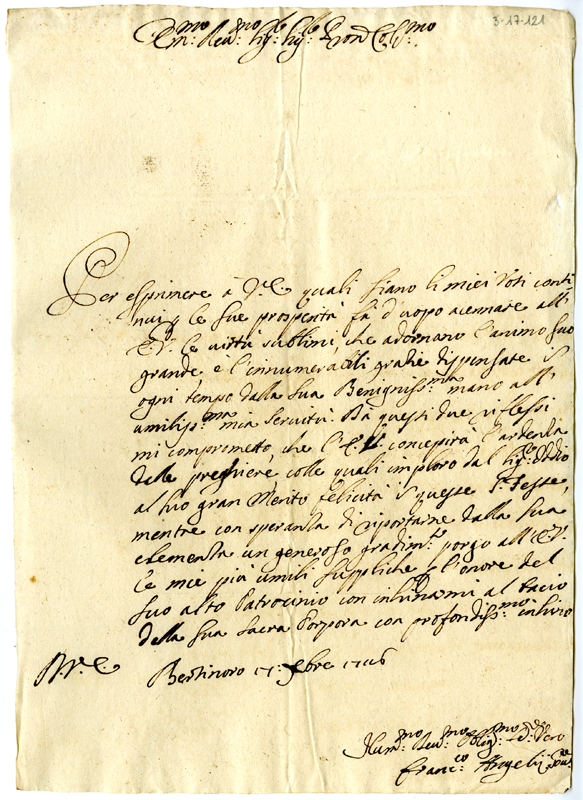 3-17-121
Em:mo Reu:mo Sig:re Sig:re Pron Col:mo
Per esprimere à V:E. quali siano li miei Voti conti
nui p le sue prosperità fà d'uopo accennare all'
E.V. le virtù sublimi, che adornano l'animo suo
grande e l'innumerabili grazie dispensate in
ogni tempo dalla sua Benigniss:ma mano all'
umiliss:ma mia servitù. Da questi due riflessi
mi comprometto, che l'E.V. concepirà l'ardenza
delle preghiere, colle quali imploro dal Sig:re Iddio
al suo gran Merito felicità in queste S:te Feste,
mentre con speranza di riportarne dalla sua
clemenza un generoso gradim:to porgo all'E.V.
le mie più umili suppliche p l'onore del
suo alto Patrocinio con inchinarmi al bacio
della sua Sacra Porpora con profondiss:mo inchino
Bertinoro 17: Xbre 1716
Hum:mo Reu:mo Oblig:mo Ser:
Franc:co Angelij